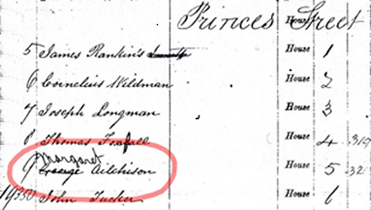 Princes Street
5 James Rankin's House 1
6 Cornelius Wildman House 2
7 Joseph Longman House 3
8 Thomas House 4 .319
Margaret
9 George Aitchison House 5 .32
19350 John Tucker House 6